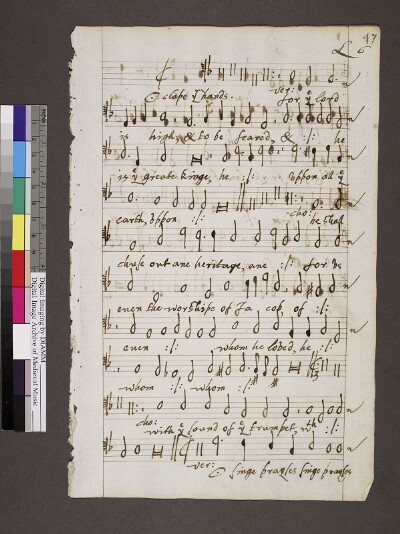 47
L 6
ver:
O clape yͤ hands. for yͤ lord
is high, & to be feared, & :/: he
is yͤ greate kinge, he :/: Vppon al yͤ
cho:
earth, Vppon :/: he shal
chuse out ane heritage, ane :/: for vs
euen the worshipe of Jacob, of :/:
euen :/: whom he loved, he :/:
whom :/: whom :/:
cho:
with yͤ sound of yͤ trumpet, wth :/:
ver: O singe prayses singe prayses
Digital Imaging by DIAMM
Digital Image Archive of Medieval Music